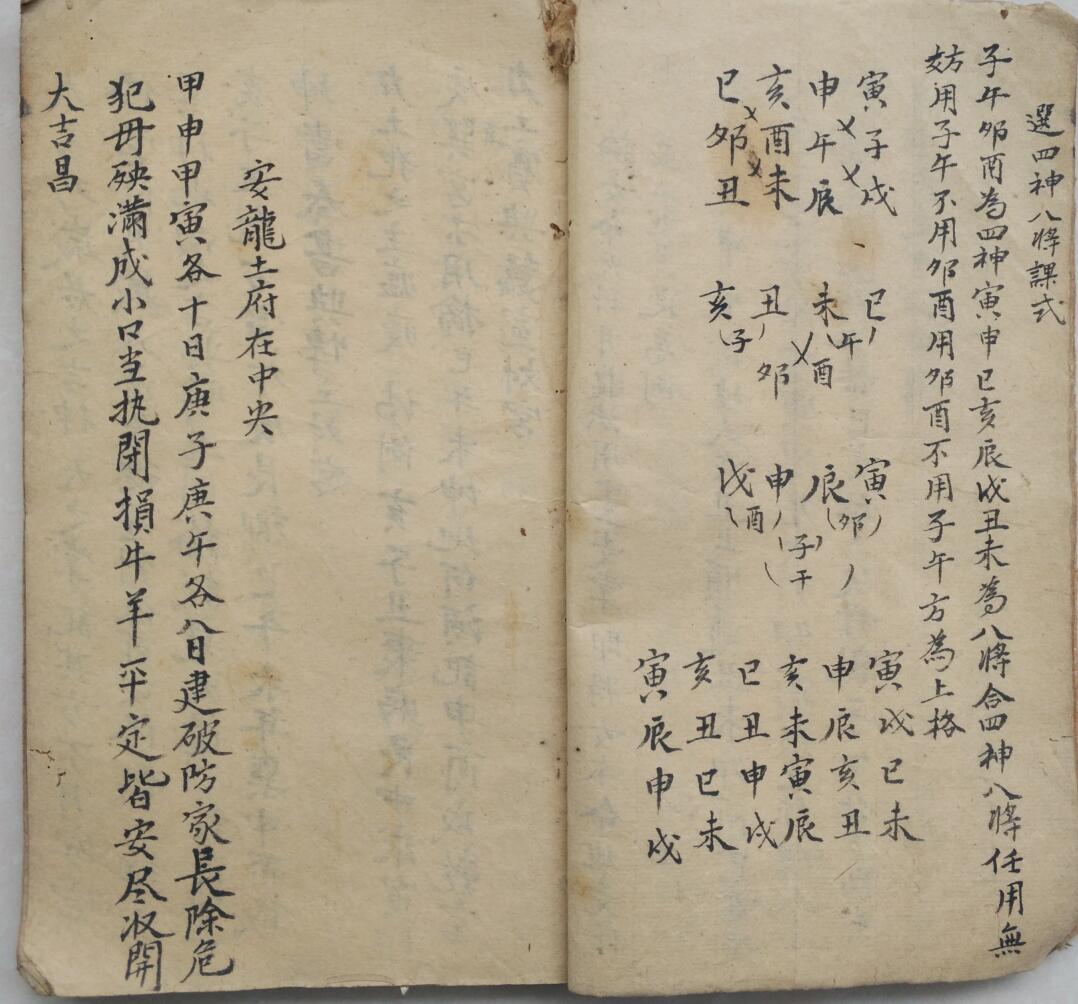 選四神八將課式
子午卯酉為四神寅申巳亥辰戌丑未為八將合四神八將任用無
妨用子午不用卯酉用卯酉不用子午方為上格
寅子戌
申午辰
亥酉未
巳卯丑
巳午
未酉
丑卯
亥子
寅卯
辰
申子午
戌酉
寅戌巳未
申辰亥丑
亥未寅辰
巳丑申戌
亥丑巳未
寅辰申戌
安龍土府在中央
甲申甲寅各十日庚子庚午各八日建破防家長除危
犯毋殃滿成小口当执閉損牛羊平定皆安尽收開
大吉昌